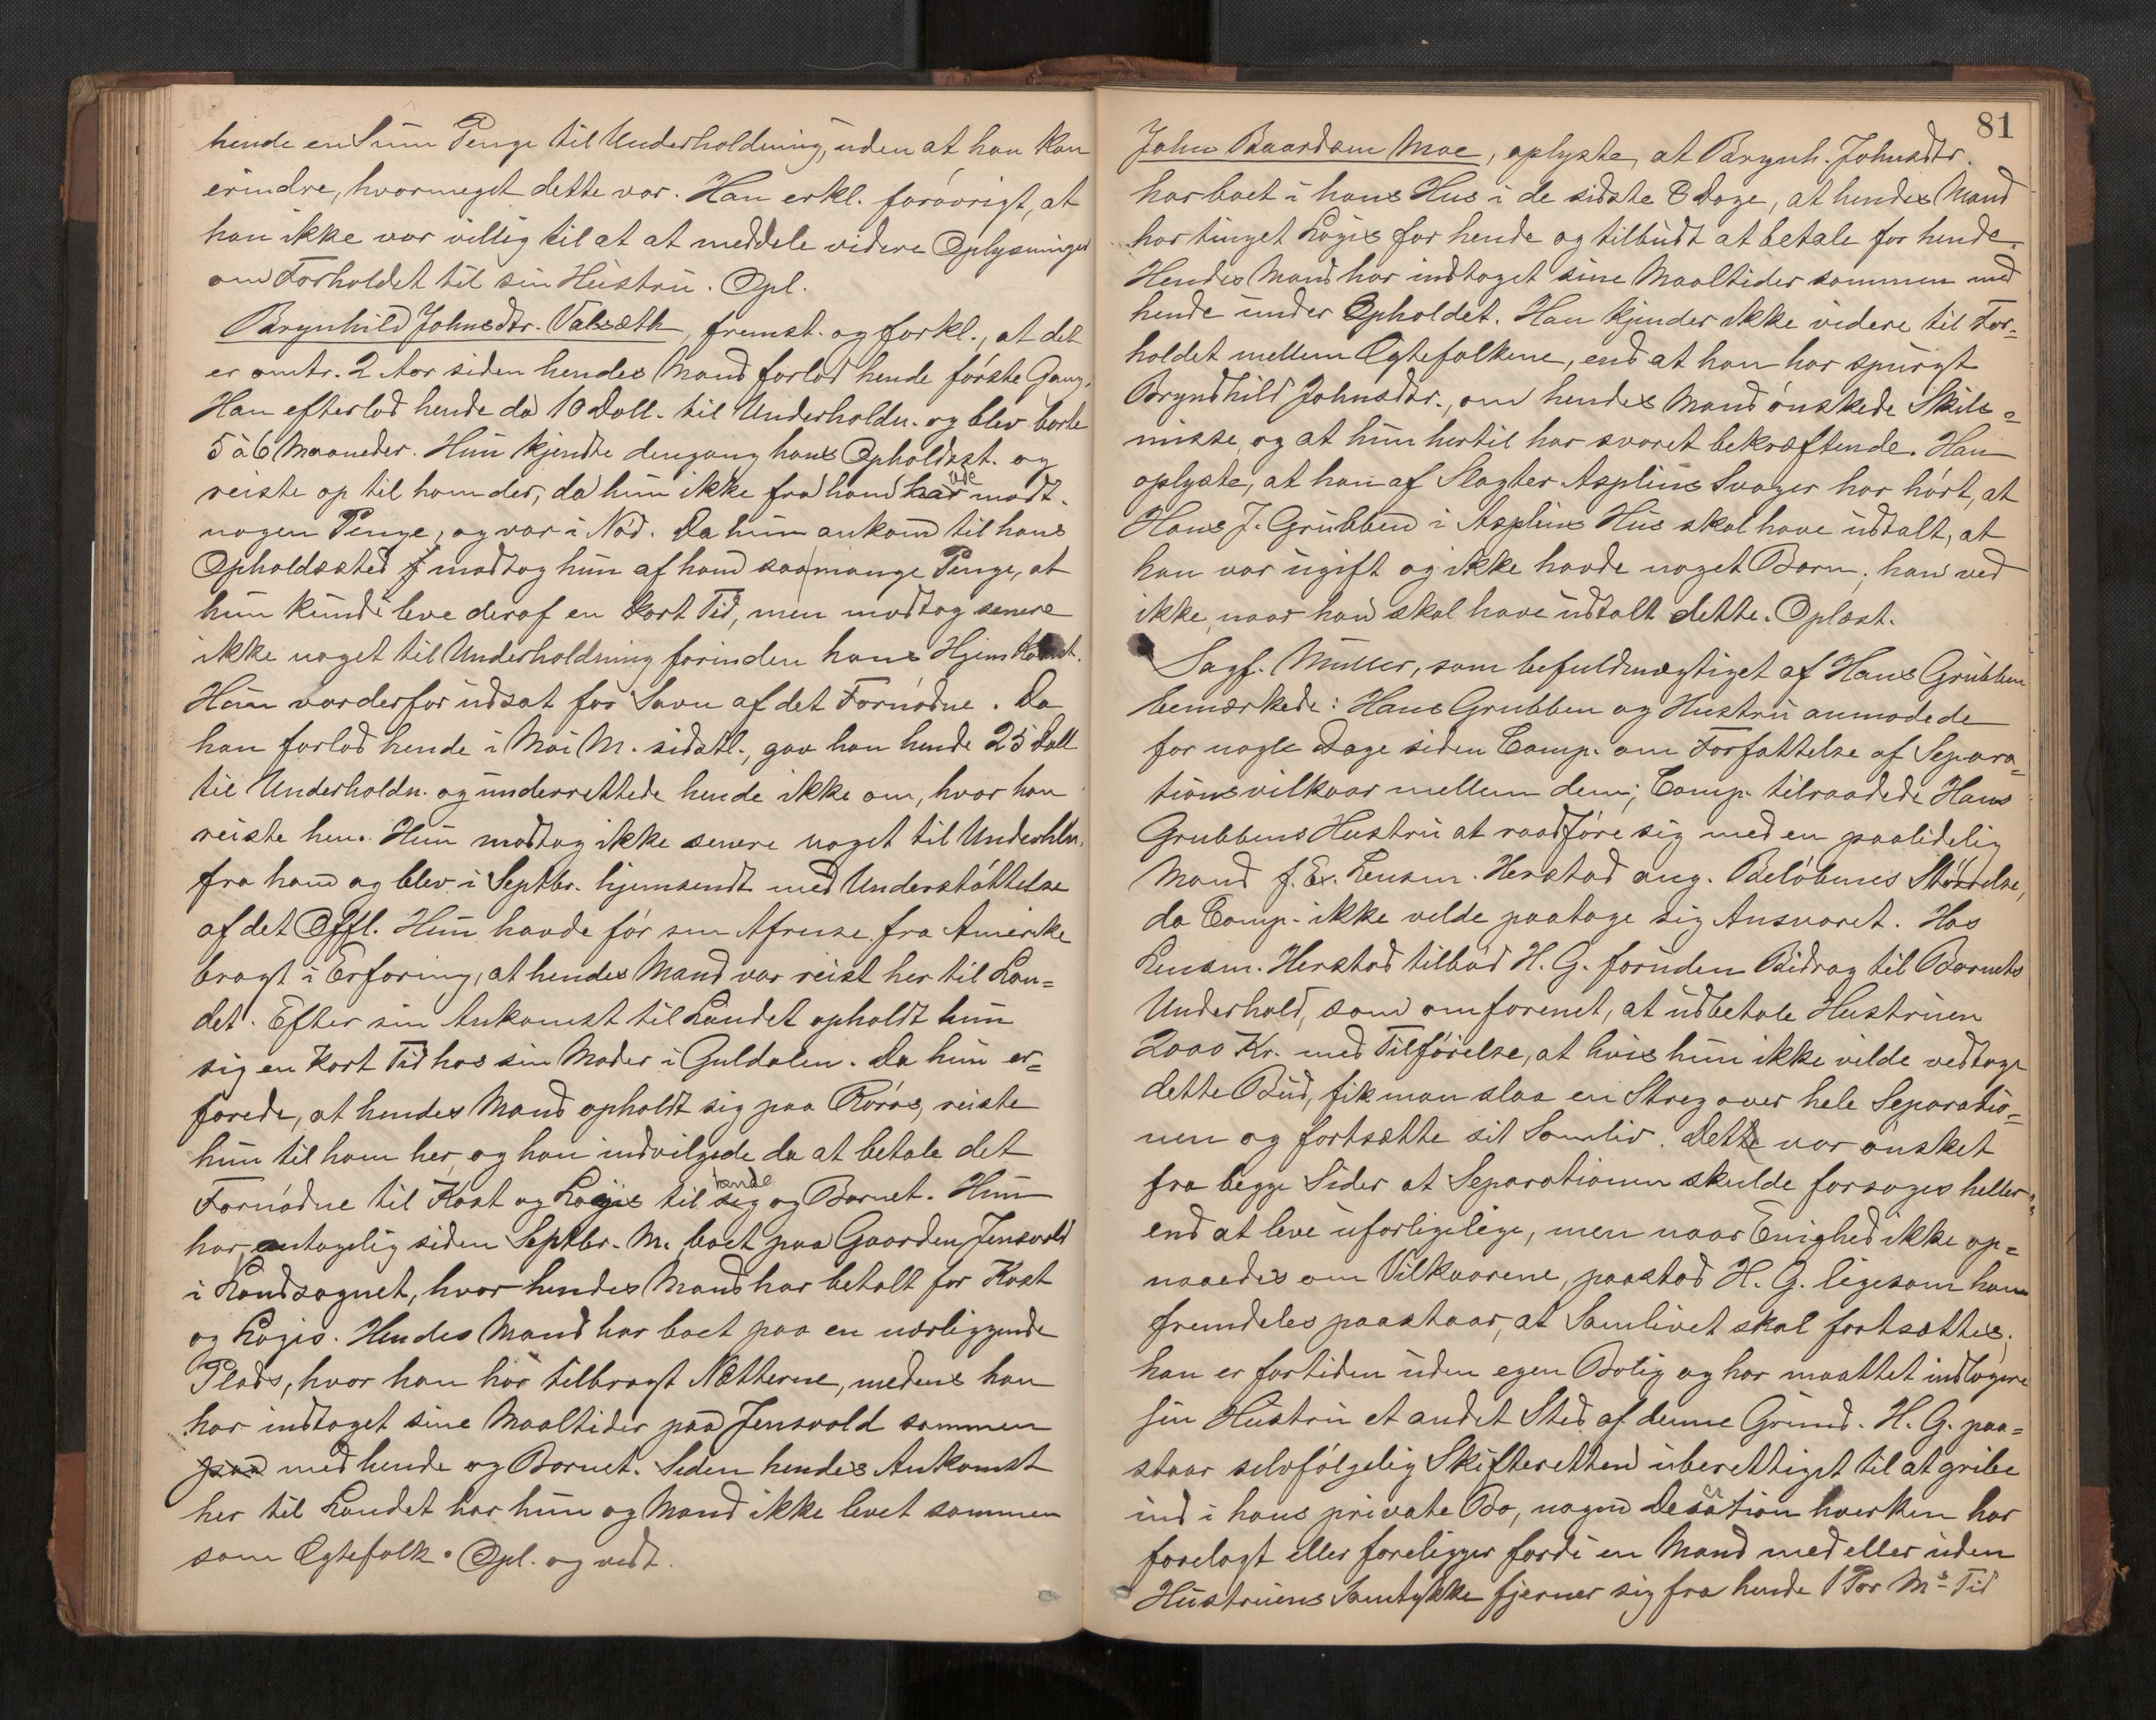 hende en Sum Penge til Underholdning, uden at han kan
erindre, hvormeget dette var. Han erkl. forøvrigt, at
han ikke var villig til at at meddele videre Oplysninger
om Forholdet til sin Hustru. Opl.
Brynhild Johnsdtr. Valsæth, fremst. og forkl., at det
er omtr. 2 Aar siden hendes Mand forlod hende første Gang.
Han efterlod hende da 10 Doll. til Underholdn. og blev borte
5 à 6 Maaneder. Hun kjendte dengang hans Opholdsst. og
reiste op til ham der, da hun ikke fra ham har modt.
nogen Penge, og var i Nød. Da hun ankom til hans
Opholdssted modtog hun af ham saa mange Penge, at
hun kunde leve deraf en kort Tid, men modtog senere
ikke noget til Underholdning forinden hans Hjemkomst.
Hun var derfor udsat for Savn af det Fornødne. Da
han forlod hende i Mai M. sidstl., gav han hende 25 Doll.
til Underholdn. og underrettede hende ikke om, hvor han
reiste hen. Hun modtog ikke senere noget til Underhln.
fra ham og blev i Septbr. hjemsendt med Understøttelse
af det Offl. Hun havde før sin Afreise fra Amerika
bragt i Erfaring, at hendes Mand var reist her til Lan=
det. Efter sin Ankomst til Landet opholdt hun
sig en kort Tid hos sin Moder i Guldalen. Da hun er=
farede, at hendes Mand opholdt sig paa Røros, reiste
hun til ham her, og han indvilgede da at betale det
Fornødne til Kost og Logis til sig hende og Barnet. Hun
har antagelig siden Septbr. M. boet paa Gaarden Jensvold
i Landsognet, hvor hendes Mand har betalt for Kost
og Logis. Hendes Mand har boet paa en nærliggende
Plads, hvor han har tilbragt Nætterne, medens han
har indtaget sine Maaltider paa Jensvold sammen
paa med hende og Barnet. Siden hendes Ankomst
her til Landet har hun og Mand ikke levet sammen
som Egtefolk. Opl. og vedt.
81
John Baardsen Moe, oplyste, at Brynh. Johnsdtr.
har boet i hans Hus i de sidste 8 Dage, at hendes Mand
har tinget Logis for hende og tilbudt at betale for hende.
Hendes Mand har indtaget sine Maaltider sammen med
hende under Opholdet. Han kjender ikke videre til For=
holdet mellem Egtefolkene, end at han har spurgt
Bryndhild Johnsdtr., om hendes Mand ønskede Skils=
misse, og at hun hertil har svaret bekræftende. Han
oplyste, at han af Slagter Asplins Svoger har hørt, at
Hans J. Grubben i Asplins Hus skal have udtalt, at
han var ugift og ikke havde noget Barn; han ved
ikke, naar han skal have udtalt dette. Oplæst.
Sagf. Müller, som befuldmægtiget af Hans Grubben
bemærkede: Hans Grubben og Hustru anmodede
for nogle Dage siden Comp. om Forfattelse af Separa=
tionsvilkaar mellem dem; Comp. tilraadede Hans
Grubbens Hustru at raadføre sig med en paalidelig
Mand f. Ex. Lensm. Herstad ang. Beløbenes Størrelse,
da Comp. ikke vilde paatage sig Ansvaret. Hos
Lensm. Herstad tilbød H. G. foruden Bidrag til Barnets
Underhold, som omforenet, at udbetale Hustruen
2000 Kr. med Tilførelse, at hvis hun ikke vilde vedtage
dette Bud, fik man slaa en Streg over hele Separatio=
nen og fortsætte sit Samliv. Dette var ønsket
fra begge Sider at Separationen skulde forsøges heller
end at leve uforligelige, men naar Enighed ikke op=
naaedes om Vilkaarene, paastod H. G. ligesom han
fremdeles paastaar, at Samlivet skal fortsættes;
han er fortiden uden egen Bolig og har maattet indlogere
sin Hustru et andet Sted af denne Grund. H. G. paa=
staar selvfølgelig Skifteretten uberettiget til at gribe
ind i hans private Bo, nogen Desation hverken har
forelagt eller foreligger fordi en Mand med eller uden
Hustruens Samtykke fjerner sig fra hende 1 Par Ms Tid